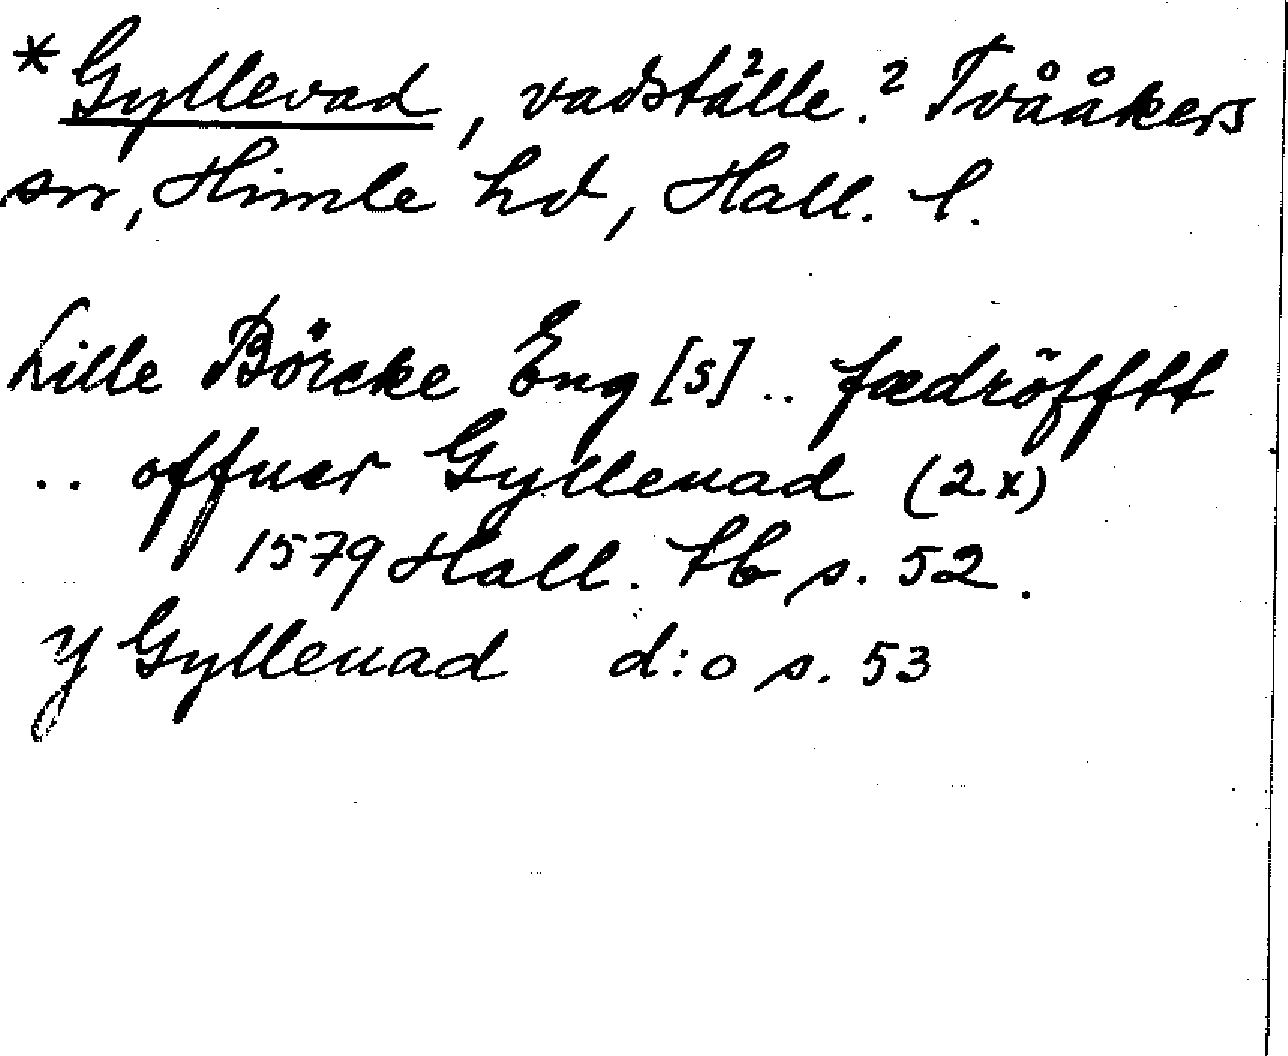 *Gyllevad, vadställe? ? Tvååkers
sn, Himle hd, Hall. l.
Lille Börcke Eng [s] .. fædröfftt
.. offuer Gylleuad (2x)
1579 Hall. tb s. 52.
y Gylleuad d:o s. 53